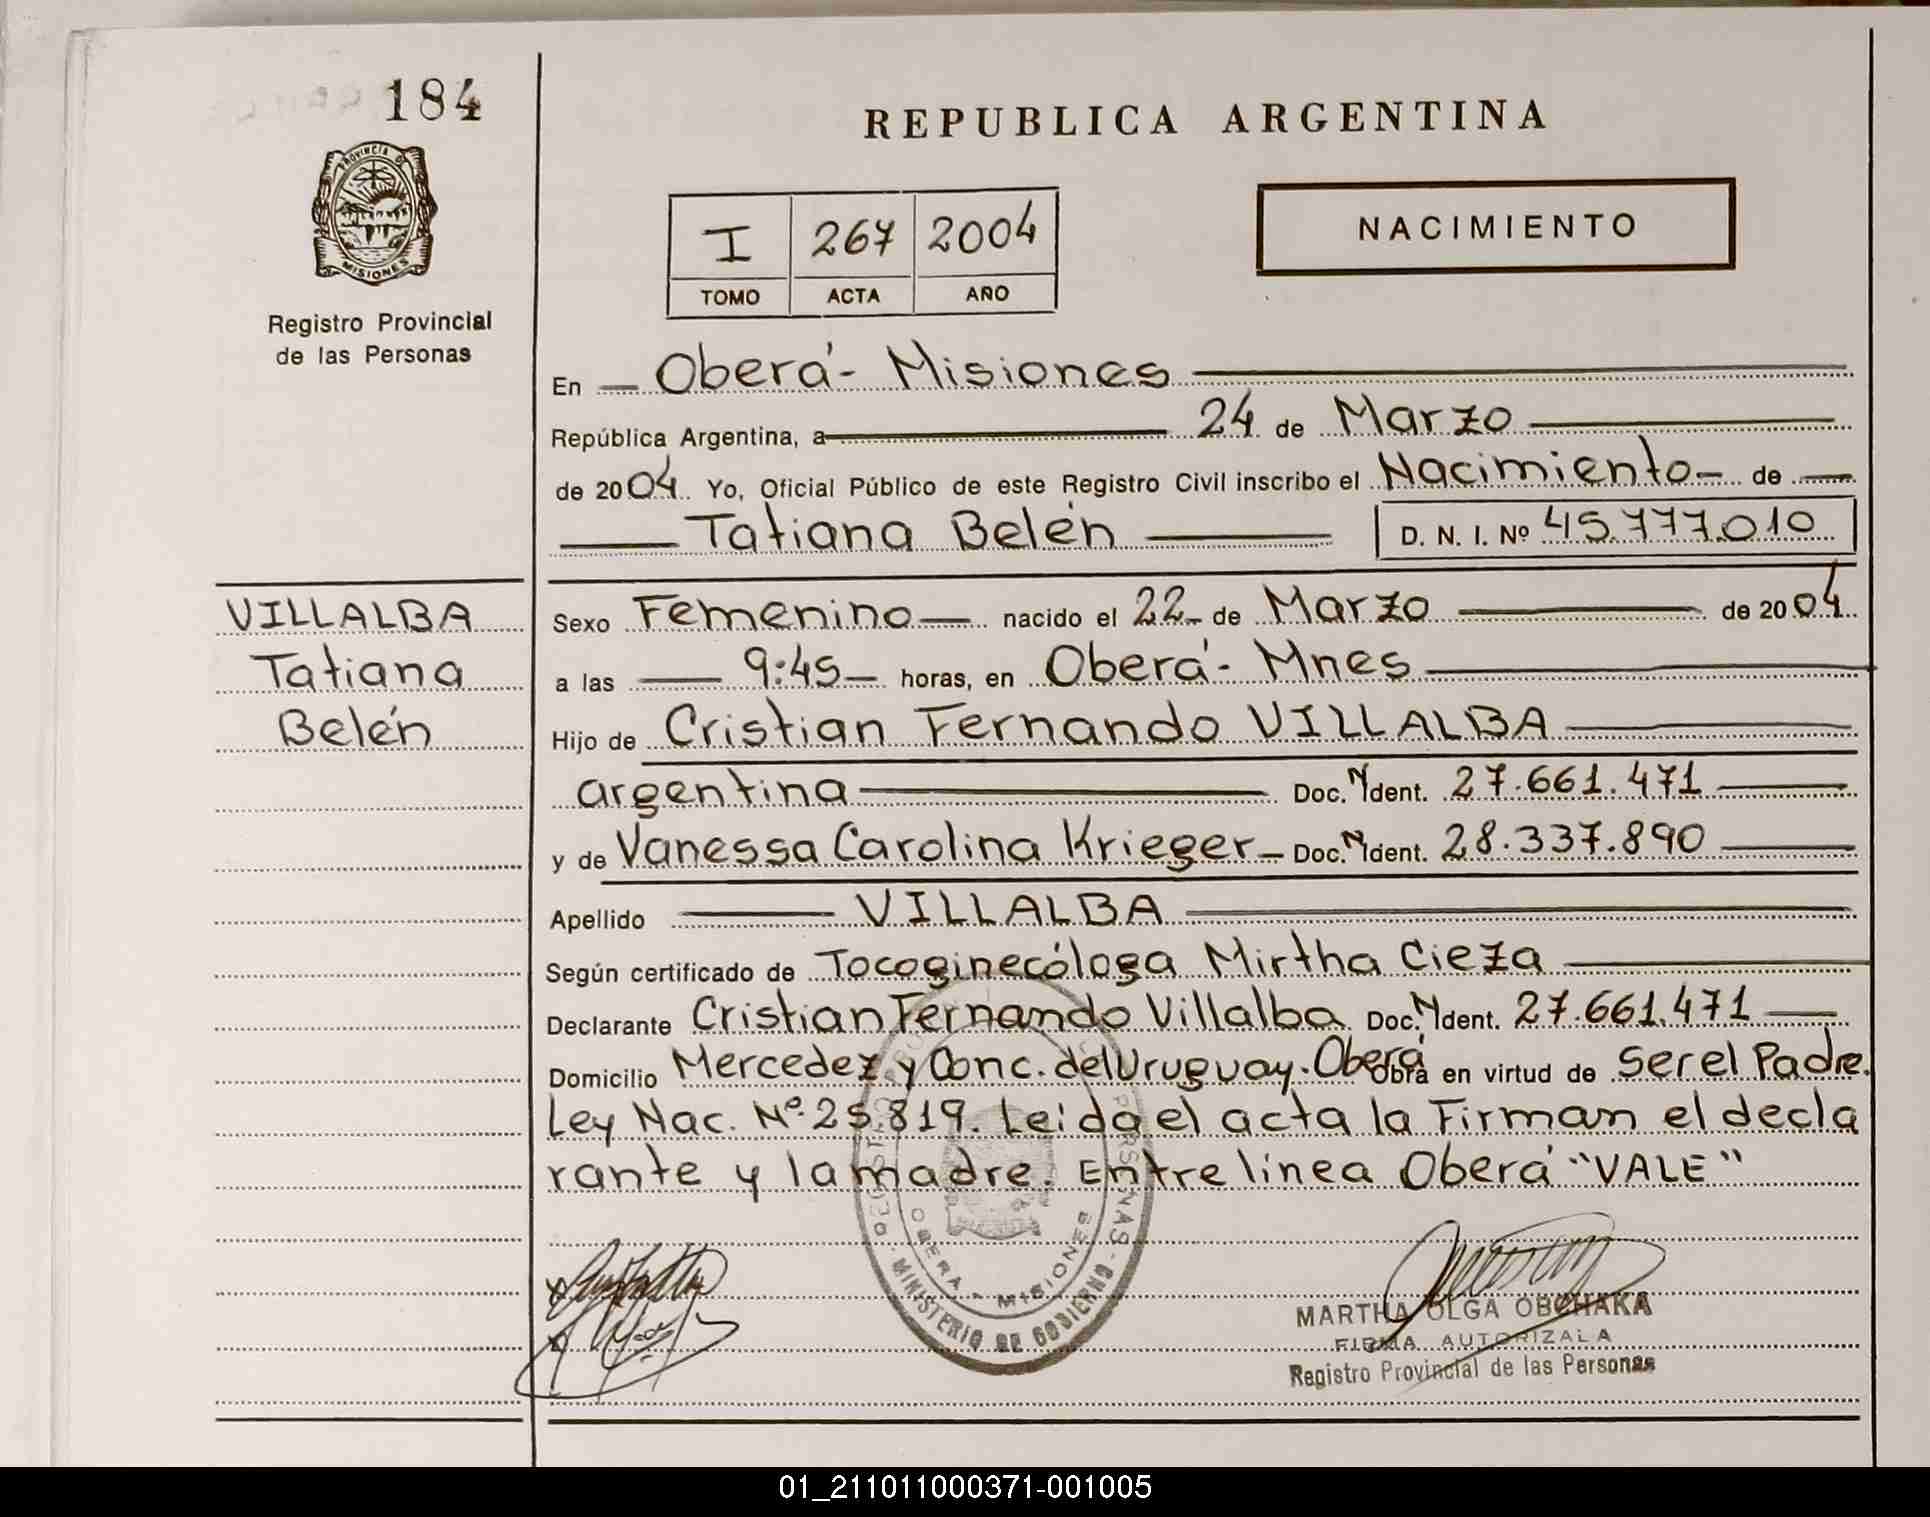 184
PROVINCIA DE
MISIONES
Registro Provincial
de las Personas
REPUBLICA ARGENTINA
I 267 2004
TOMO ACTA AÑO
NACIMIENTO
En Oberá - Misiones
República Argentina, a 24 de Marzo
de 2004. Yo, Oficial Público de este Registro Civil inscribo el Nacimiento de
Tatiana Belén D. N. I. Nº 45.777.010
VILLALBA
Tatiana
Belén
Sexo Femenino nacido el 22 de Marzo de 2004
a las 9:45 horas, en Oberá - Mnes
Hijo de Cristian Fernando VILLALBA
argentina Doc. N Ident. 27.661.471
y de Vanessa Carolina Krieger Doc. N Ident. 28.337.890
Apellido VILLALBA
Según certificado de Tocoginecóloga Mirtha Cieza
Declarante Cristian Fernando Villalba Doc. N Ident. 27.661.471
Domicilio Mercedez y Conc. del Uruguay. Oberá Obra en virtud de Ser el Padre.
Ley Nac. Nº 25.819. Leída el acta la Firman el decla
rante y la madre. Entre línea Oberá "VALE"
OBERA - MISIONES
MINISTERIO DE GOBIERNO
MARTHA OLGA OBCHAKA
FIRMA AUTORIZALA
Registro Provincial de las Personas
01_211011000371-001005